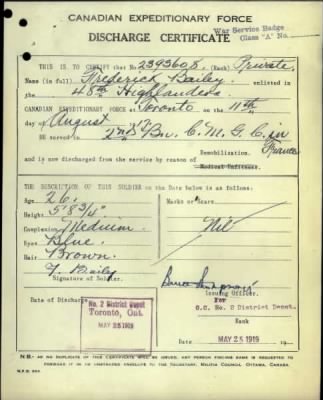 CANADIAN EXPEDITIONARY FORCE
War Service Badge
DISCHARGE CERTIFICATE
Class "A" No.
THIS IS TO CERTIFY that No. 2393608 (Rank) Private
Name (in full) Frederick Bailey enlisted in
the 48th Highlanders
CANADIAN EXPEDITIONARY FORCE at Toronto on the 11th
day of August 1917
He served in 2nd Bn. C.M.G.C. in France
and is now discharged from the service by reason of Demobilization.
Medical Unfitness.
THE DESCRIPTION OF THIS SOLDIER on the Date below is as follows:
Age 26 Marks or Scars
Height 5' 8 3/4"
Complexion Medium Nil
Eyes Blue
Hair Brown
F. Bailey
Signature of Soldier.
Issuing Officer.
Date of Discharge
For
O.C. No. 2 District Depot.
No. 2 District Depot
Toronto, Ont.
Rank
MAY 25 1919
MAY 25 1919
Date
N.B.- AS NO DUPLICATE OF THIS CERTIFICATE WILL BE ISSUED, ANY PERSON FINDING SAME IS REQUESTED TO
FORWARD IT IN AN UNSTAMPED ENVELOPE TO THE SECRETARY, MILITIA COUNCIL, OTTAWA, CANADA.